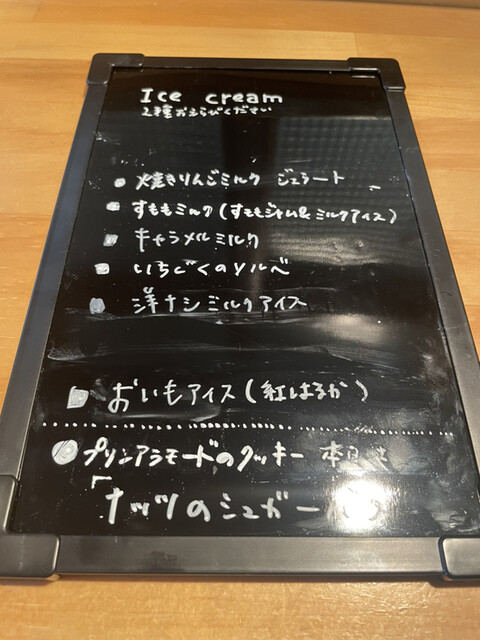 Ice cream
2種おえらびください
焼きりんごミルク ジェラート
すももミルク(すももジャム&ミルクアイス)
キャラメルミルク
いちじくのソルベ
洋ナシミルクアイス
おいもアイス(紅はるか)
プリンアラモードのクッキー 本日は
「ナッツのシュガー